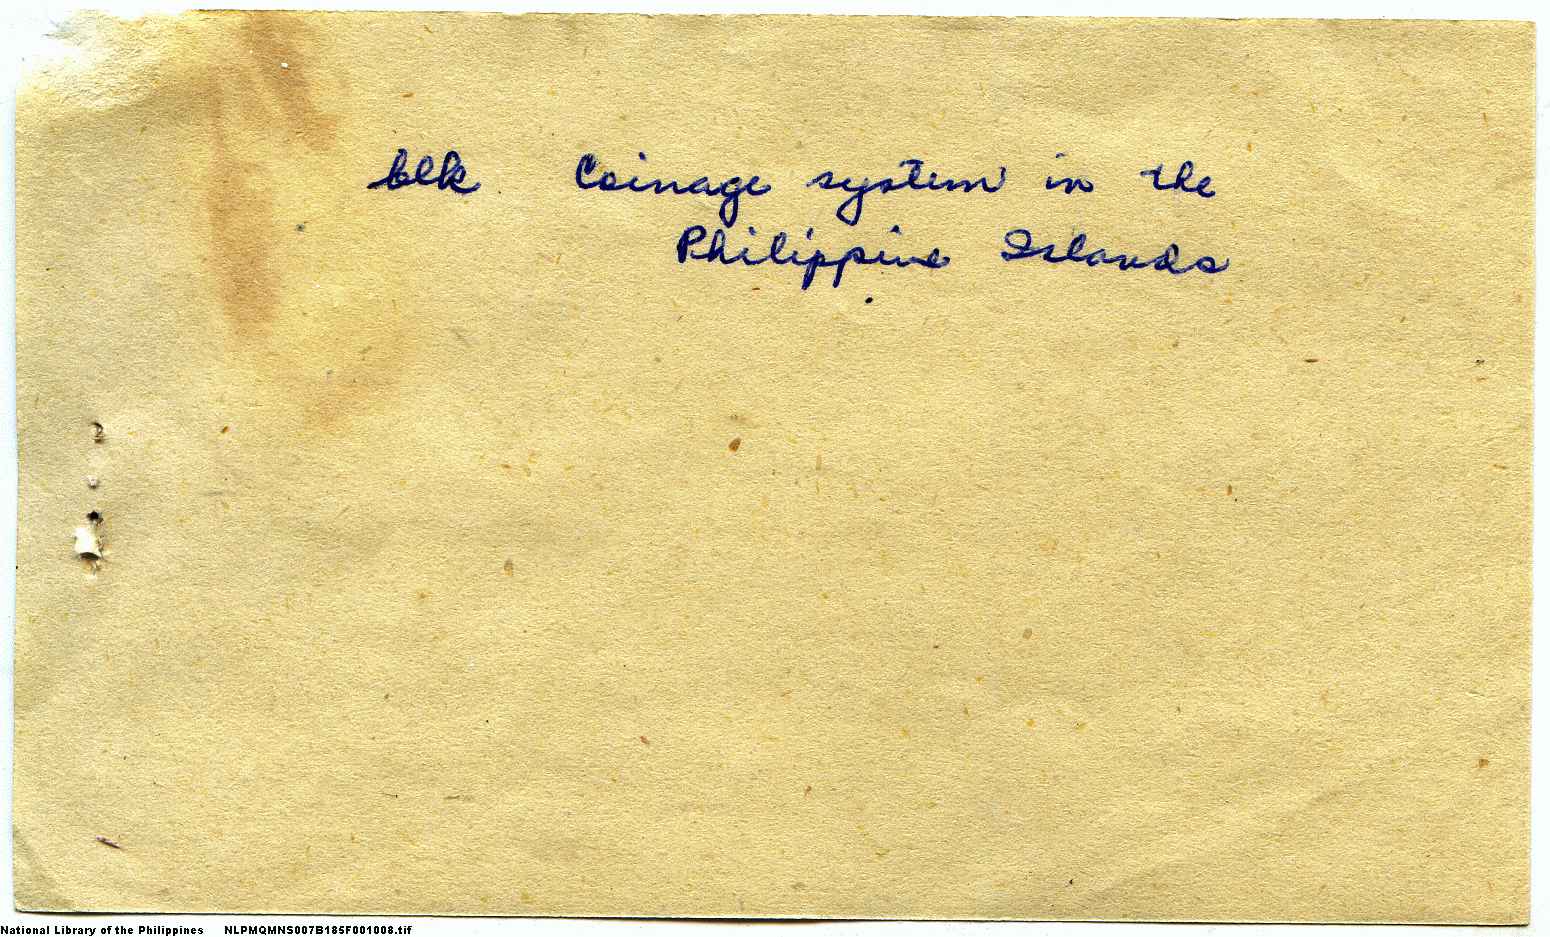 blk Coinage system in the
Philippine Islands
National Library of the Philippines NLPMQMNS007B185F001008.tif